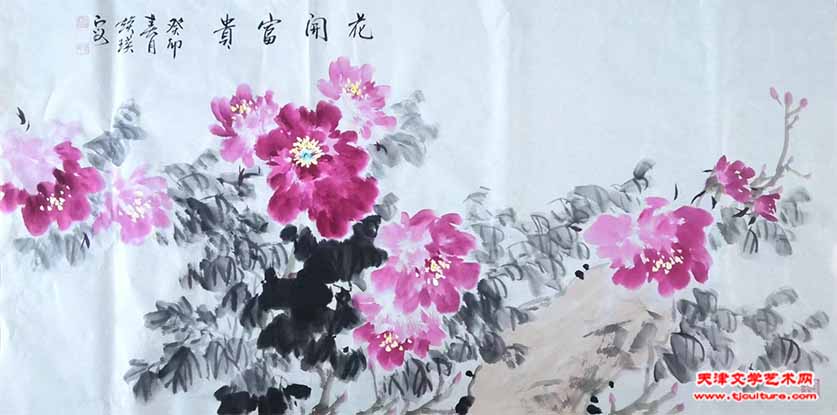 花開富貴
癸卯
春月
天津文学艺术网
www.tjculture.com